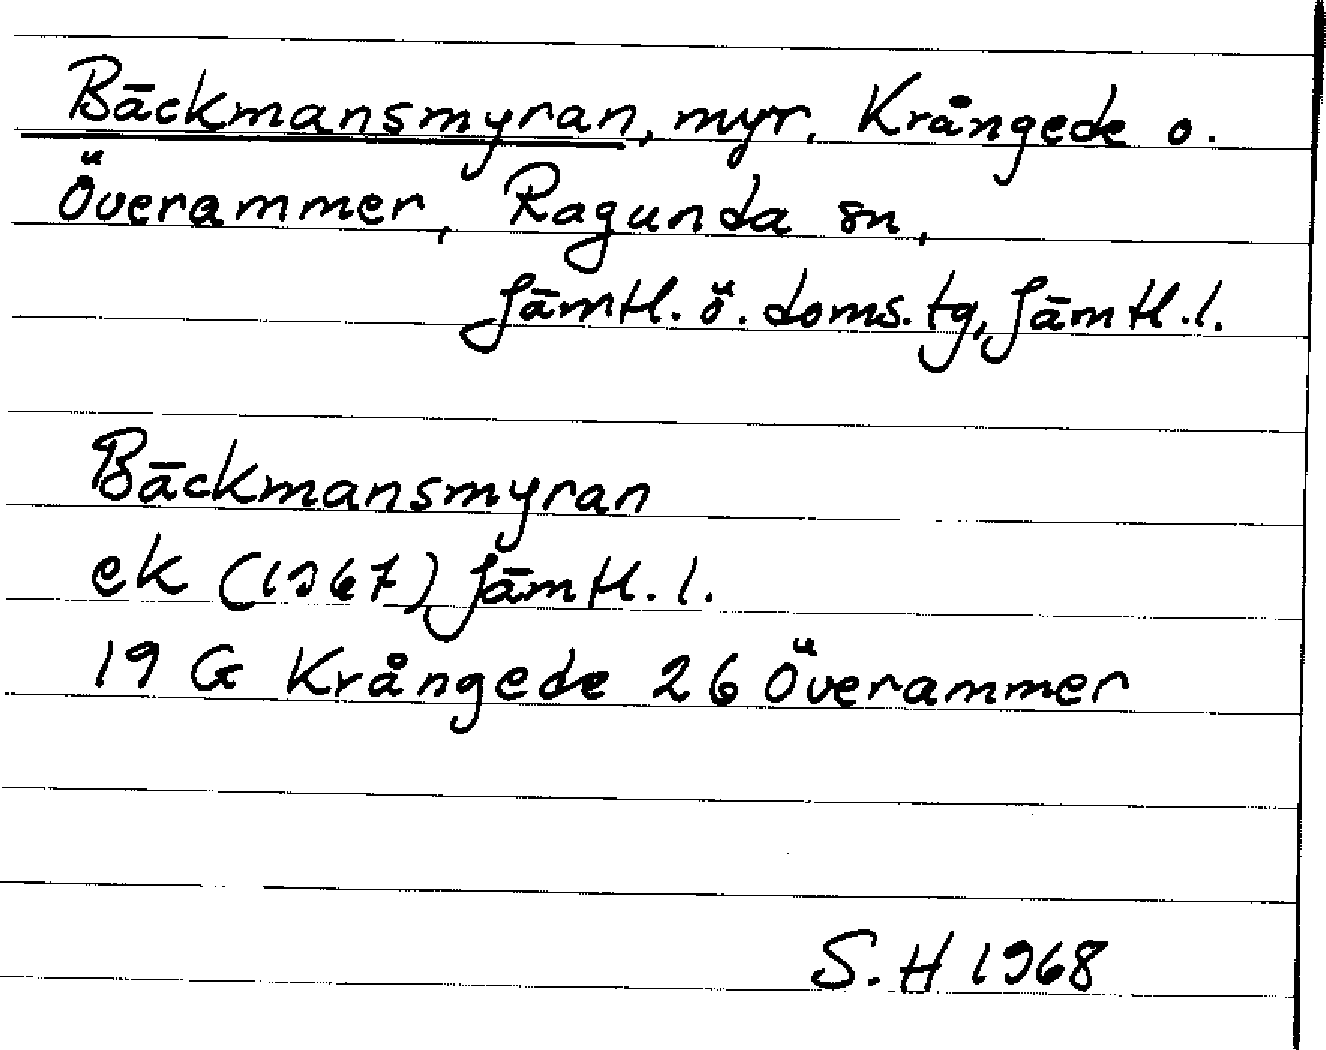 Bäckmansmyran, myr, Krångede o.
Överammer, Ragunda sn,
Jämtl. ö. doms. tg, Jämtl. l.
Bäckmansmyran
ek (1967) Jämtl. l.
19 G Krångede 26 Överammer
S. H 1968